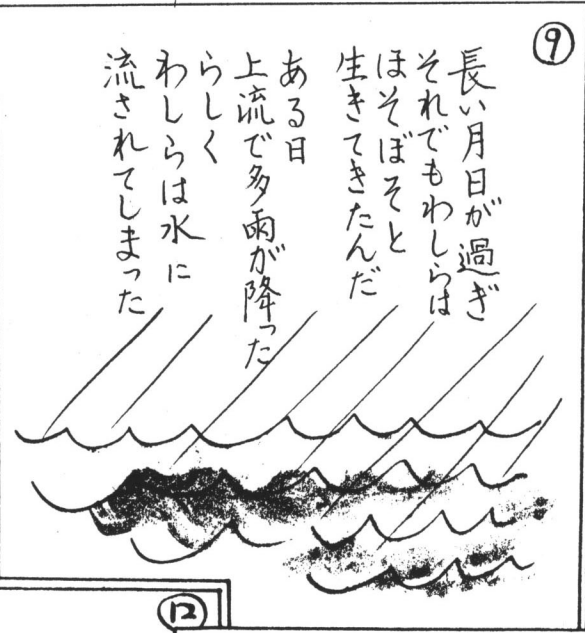 ⑨
長い月日が過ぎ
それでもわしらは
ほそぼそと
生きてきたんだ
ある日
上流で多雨が降った
らしく
わしらは水に
流されてしまった
⑫